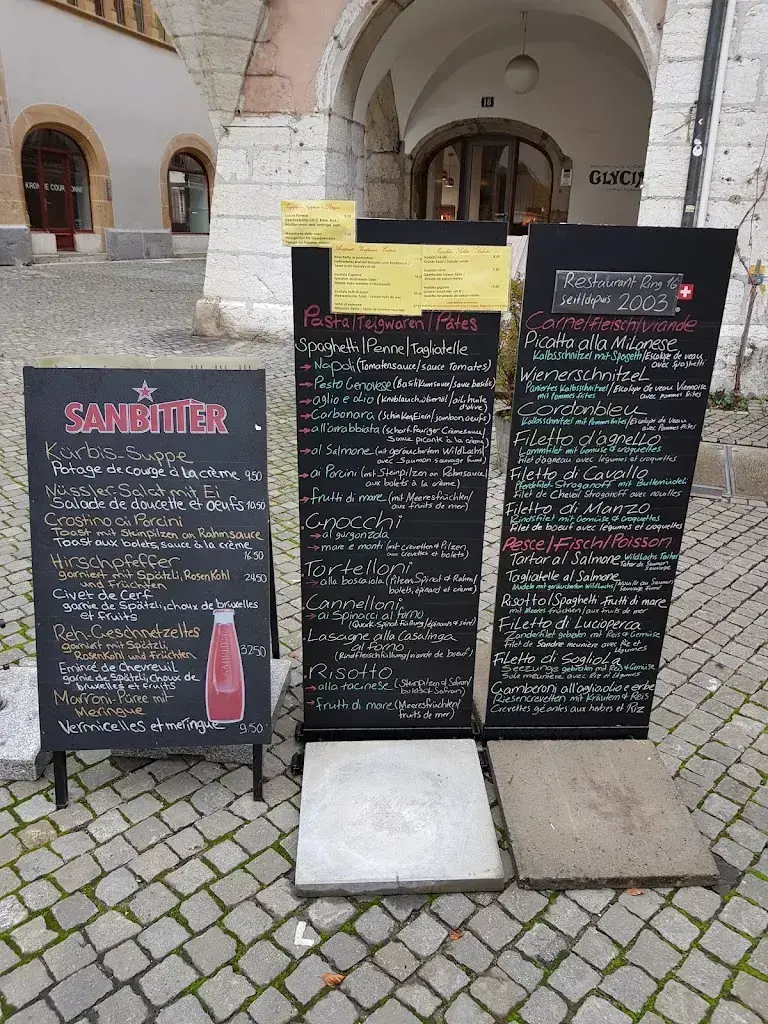 SANBITTER
Kürbis-Suppe
Potage de courge à la crème 9.50
Nüssler-Salat mit Ei
Salade de doucette et oeufs 10.50
Crostino ai Porcini
Toast mit Steinpilzen an Rahmsauce
Toast aux bolets, sauce à la crème
16.50
Hirschpfeffer
garniert mit Spätzli, Rosenkohl
und Früchten
24.50
Civet de Cerf
garnie de Spätzli, choux de bruxelles
et Fruits
Reh-Geschnetzeltes
garniert mit Spätzli,
Rosenkohl und Früchten
37.50
Emincé de Chevreuil
garnie de Spätzli, choux de
bruxelles et fruits
Marroni-Püree mit
Meringue
Vermicelles et meringue 9.50
Pasta/Teigwaren/Pâtes
Spaghetti/Penne/Tagliatelle
→ Napoli (Tomatensauce/sauce Tomates)
→ Pesto Genovese (Basilikumsauce/sauce basilic)
→ aglio e olio (Knoblauch, olivenöl/ail, huile
d'olive)
→ Carbonara (Schinken, Eien/jambon, oeufs)
→ all'arrabbiata (scharf-feuriger Crèmesauce/
Sauce picante à la crème)
→ al Salmone (mit geräuchertem Wildlachs/
avec Saumon sauvage fumé)
→ ai Porcini (mit Steinpilzen an Rahmsauce/
aux bolets à la crème)
→ frutti di mare (mit Meeresfrüchten/
aux fruits de mer)
Gnocchi
→ al gorgonzola
→ mare e monti (mit Crevetten & Pilzen
aux crevettes et bolets)
Tortelloni
→ alla boscaiola (Pilzen, Spinat & Rahm/
bolets, épinard et crème)
Cannelloni
→ ai Spinacci al forno
(Quark-Spinat Füllung/épinards & séré)
Lasagne alla Casalinga
al forno
(Rindfleischfüllung/viande de boeuf)
Risotto
→ alla ticinese (Steinpilzen & Safran/
bolets & Safran)
→ frutti di mare (Meeresfrüchten/
fruits de mer)
16
GLYCIN
Restaurant Ring 16
seit/depuis 2003
Carne/Fleisch/Viande
Picatta alla Milanese
Kalbsschnitzel mit Spagetti/Escalope de veau
avec Spaghetti
Wienerschnitzel
Paniertes Kalbsschnitzel/Escalope de veau Viennoise
mit Pommes frites avec Pommes frites
Cordonbleu
Kalbsschnitzel mit Pommes frites/Escalope de Veau
avec Pommes frites
Filetto d'agnello
Lammfilet mit Gemüse & croquettes
Filet d'agneau avec légumes et croquettes
Filetto di Cavallo
Pferdefilet Stroganoff mit Butternudeln
Filet de Cheval Stroganoff avec nouilles
Filetto di Manzo
Rindsfilet mit Gemüse & Croquettes
Filet de boeuf avec légumes et croquettes
Pesce/Fisch/Poisson
Tartar al Salmone Wildlachs Tartar
Tatar de Saumon
sauvage
Tagliatelle al Salmone
Nudeln mit geräuchertem Wildlachs/Nouille au Saumon
Sauvage fumé
Risotto/Spaghetti frutti di mare
mit Meeresfrüchten/aux fruits de mer
Filetto di Lucioperca
Zanderfilet gebraten mit Reis & Gemüse
Filet de Sandre meunière avec Riz et
légumes
Filetto di Sogliola
Seezunge gebraten mit Reis & Gemüse
Sole meunière avec Riz et légumes
Gamberoni all'aglio, olio e erbe
Riesencrevetten mit Kräutern & Reis
Crevettes géantes aux herbes et Riz